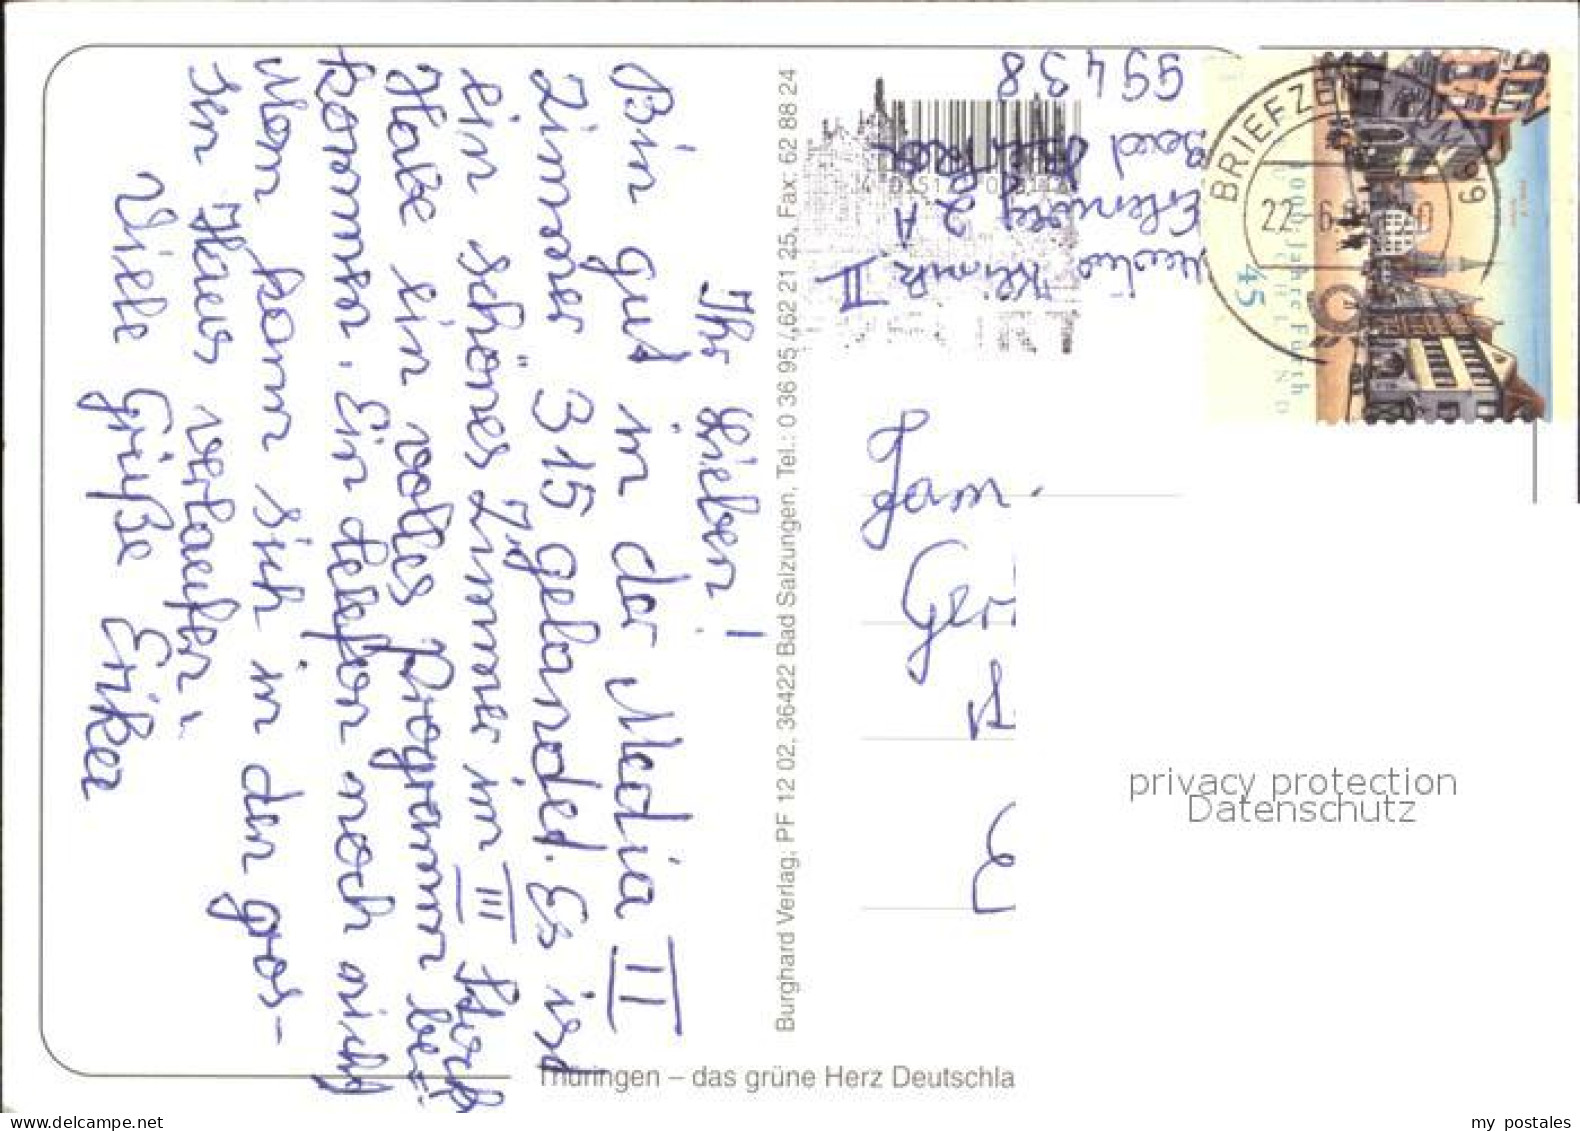 Ihr Lieben!
Bin gut in der Media II
Zimmer 315 gelandet. Es ist
ein schönes Zimmer im III Stock
Habe ein volles Programm be-
kommen. Ein Telefon noch nicht
Man kann sich in den gos-
sen Haus verlaufen.
Viele Grüße Erika
Burghard Verlag, PF 12 02, 36422 Bad Salzungen, Tel.: 0 36 95 / 62 21 25, Fax: 62 88 24
Thüringen – das grüne Herz Deutschla
Klinik II
2 A
Bad
99438
BRIEFZEN
99
22.6.
1000 Jahre Fürth
45
Fam.
Ger
privacy protection
Datenschutz
my postales